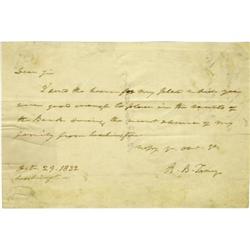 Dear Sir
I send the bearer for my plate which you
were good enough to place in the vaults of
the Bank during the recent absence of my
family from Washington
R. B. Taney
Oct. 29. 1832
Washington